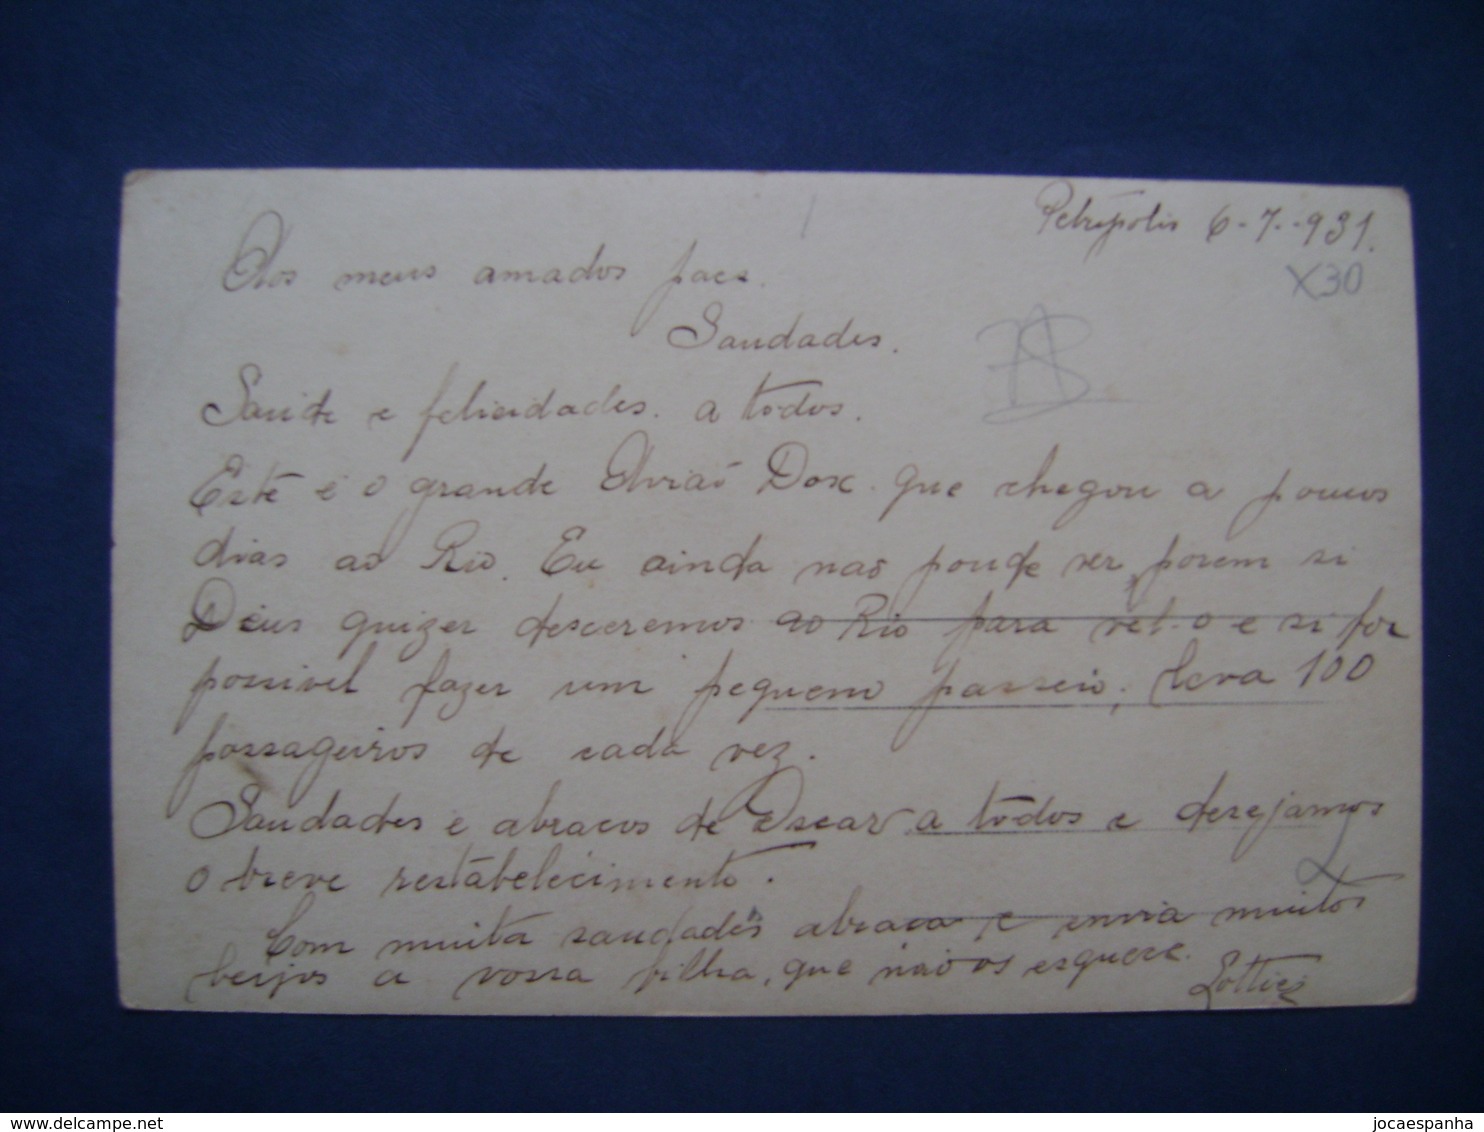 Petrópolis 6-7.-931.
X30
Aos meus amados paes.
Saudades.
Saúde e felicidades. a todos.
Este é o grande Avião Dox. que chegou a poucos
dias ao Rio. Eu ainda não poude ver, porem si
Deus quizer desceremos ao Rio para vêl-o e si for
possivel fazer um pequeno passeio, leva 100
passageiros de cada vez.
Saudades e abraços de Oscar a todos e desejamos
o breve restabelecimento.
Com muita saudades abraça e envia muitos
beijos a vossa filha, que não os esquece.
delcampe.net
jocaespanha